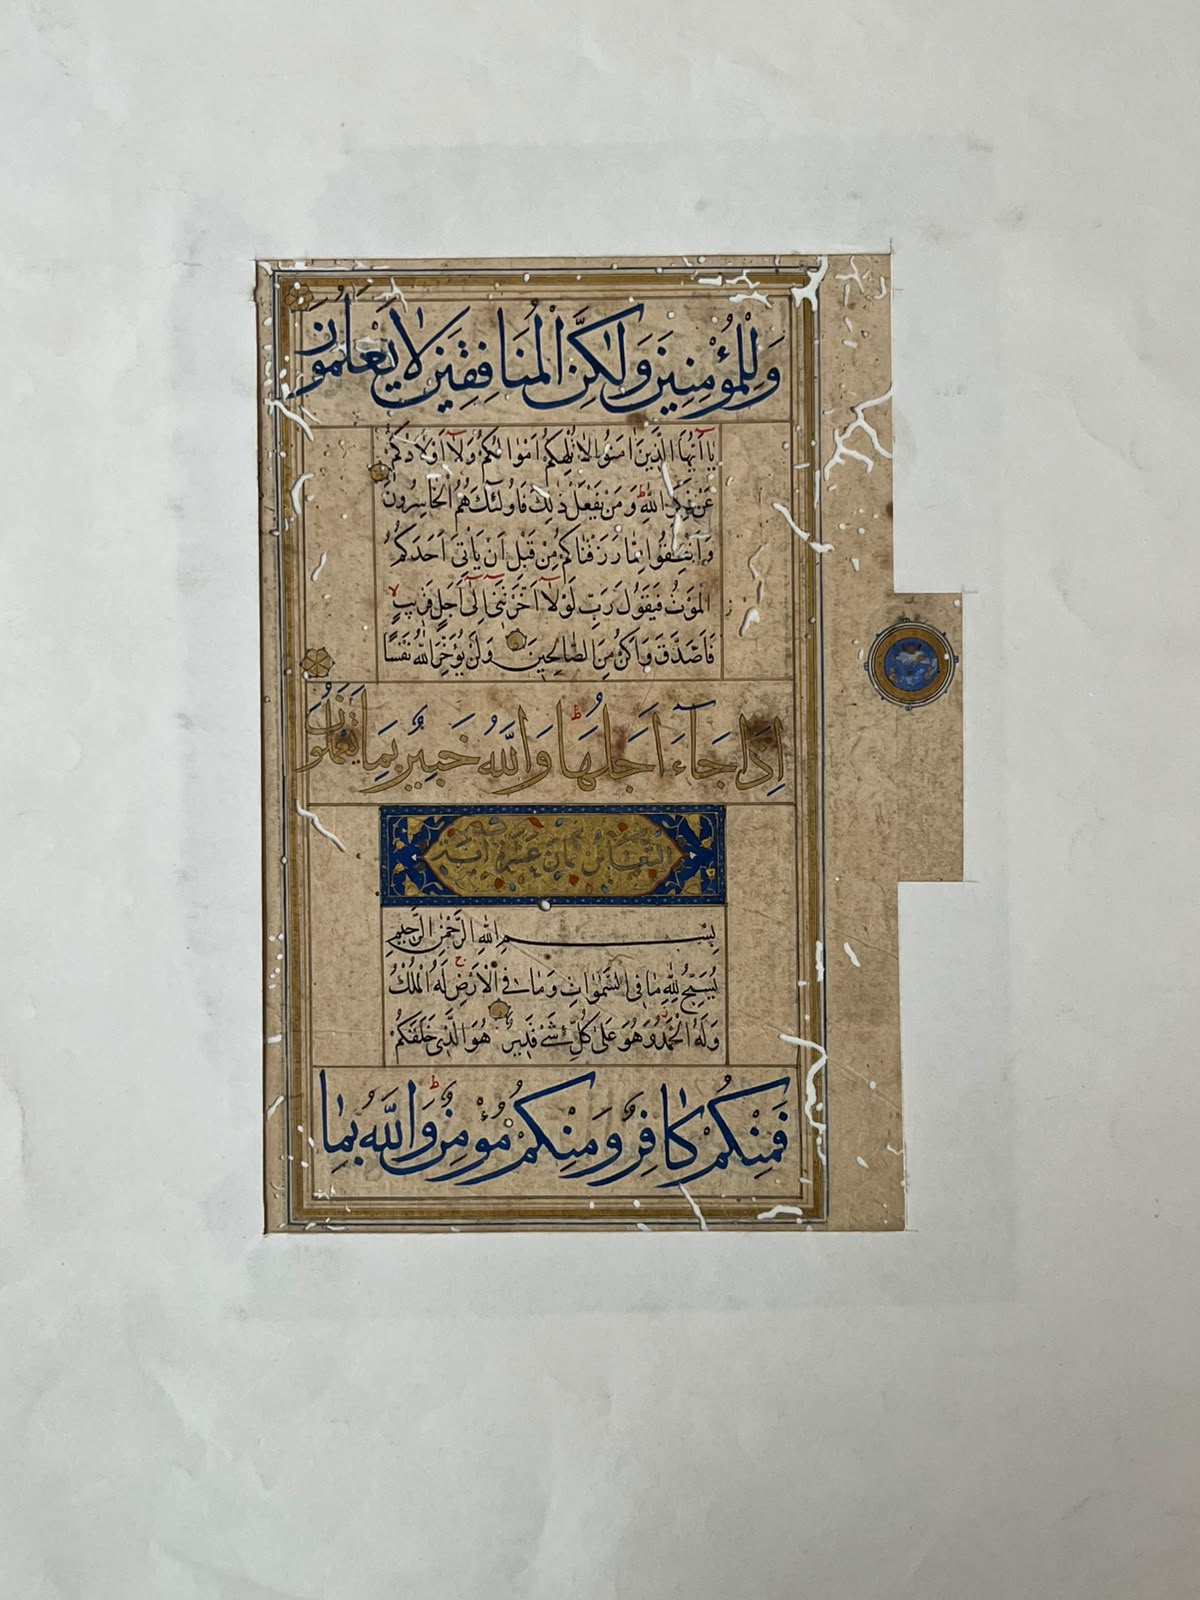 وَلِلْمُؤْمِنِينَ وَلٰكِنَّ الْمُنَافِقِينَ لَا يَعْلَمُونَ
يَا أَيُّهَا الَّذِينَ اٰمَنُوا لَا تُلْهِكُمْ اَمْوَالُكُمْ وَلَا اَوْلَادُكُمْ
عَنْ ذِكْرِ اللّٰهِ وَمَنْ يَفْعَلْ ذٰلِكَ فَاُولٰئِكَ هُمُ الْخَاسِرُونَ
وَاَنْفِقُوا مِمَّا رَزَقْنَاكُمْ مِنْ قَبْلِ اَنْ يَاْتِيَ اَحَدَكُمُ
الْمَوْتُ فَيَقُولَ رَبِّ لَوْلَا اَخَّرْتَنِي اِلٰى اَجَلٍ قَرِيبٍ
فَاَصَّدَّقَ وَاَكُنْ مِنَ الصَّالِحِينَ وَلَنْ يُؤَخِّرَ اللّٰهُ نَفْسًا
اِذَا جَاءَ اَجَلُهَا وَاللّٰهُ خَبِيرٌ بِمَا تَعْمَلُونَ
التغابن ثمان عشرة آية
بِسْمِ اللّٰهِ الرَّحْمٰنِ الرَّحِيمِ
يُسَبِّحُ لِلّٰهِ مَا فِي السَّمٰوَاتِ وَمَا فِي الْاَرْضِ لَهُ الْمُلْكُ
وَلَهُ الْحَمْدُ وَهُوَ عَلٰى كُلِّ شَيْءٍ قَدِيرٌ هُوَ الَّذِي خَلَقَكُمْ
فَمِنْكُمْ كَافِرٌ وَمِنْكُمْ مُؤْمِنٌ وَاللّٰهُ بِمَا